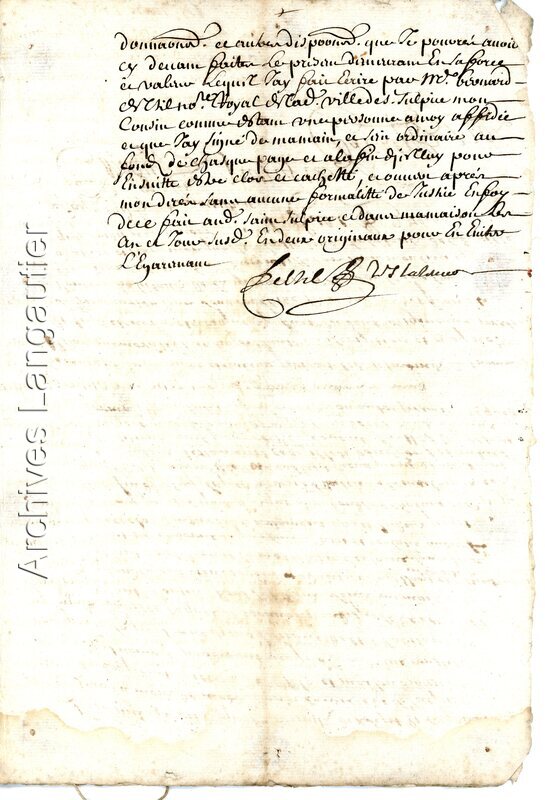 donnaons. et autres dispoons. que Je pouvres avoir
cy devant faites le presen demurant En sa force
et valeur Lequel Jay fait Ecrire par Mr. Bernard
Delhil nore. Royal de lad. ville de st sulpice mon
Cousin comme estant une personne a moy affidée
et que Jay signé de ma main, et sein ordinaire au
fond de chasque page et a la fin d'jcelluy pour
Ensuitte estre clos et cachetté, et ouvert après
mon dires sans aucune formalitté de Justice En foy
de ce fait and. saint sulpice et dans ma maison les
An et Jour susd. En deux originaux pour En Eviter
L'Egarement
Delhil
Archives Langautier